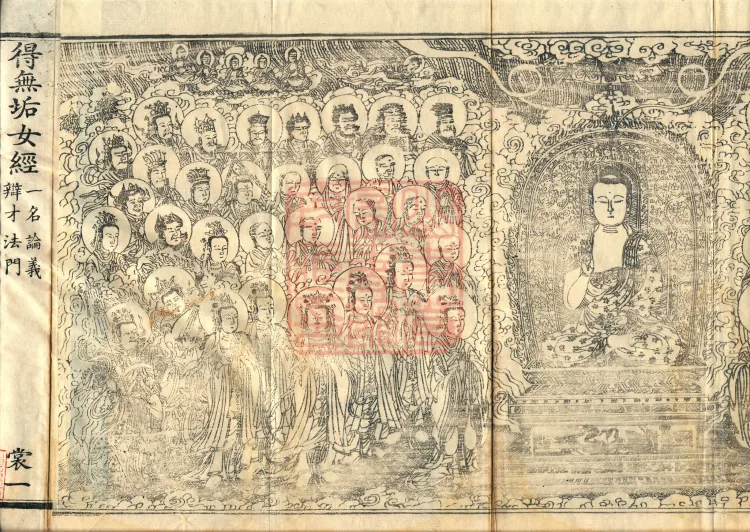 得無垢女經
一名論義
辯才法門
裳一